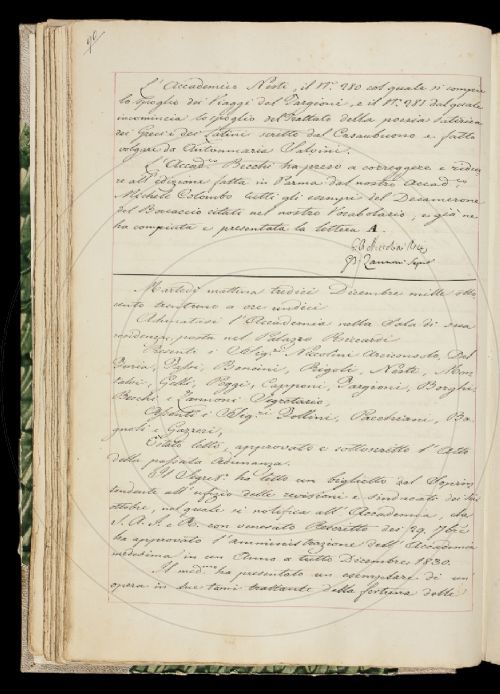 96
L'Accademico Nesti, il N.° 280 col quale si compie
lo spoglio dei Viaggi del Targioni, e il N.° 281 dal quale
incomincia lo spoglio del Trattato della poesia satirica
dei Greci e dei Latini scritto dal Casaubuono e fatto
volgare da Antonmaria Salvini.
L'Accad.co Becchi ha preso a correggere e ridur
re all'edizione fatta in Parma dal nostro Accad.co
Michele Colombo tutti gli esempi del Decamerone
del Bocaccio citati nel nostro Vocabolario, e già ne
ha compiuta e presentata la lettera A.
G. B. Niccolini
G. B. Zannoni Segret.
Martedì mattina tredici Dicembre mille otto
cento trentuno a ore undici
Adunatasi l'Accademia nella Sala di sua
residenza posta nel Palazzo Riccardi
Presenti i Sig.ri Niccolini Arciconsolo, Del
Furia, Bencini, Rigoli, Nesti,
Gelli, Poggi, Capponi, Targioni, Borghi,
Becchi e Zannoni Segretario,
Assenti i Sig.ri Pollini, Pacchiani, Ba
gnoli e Gazzeri,
È stato letto, approvato e sottoscritto l'Atto
della passata Adunanza.
Il Segret.o ha letto un biglietto del Soprin
tendente all'ufizio delle revisioni e sindacati dei
ottobre, nel quale si notifica all'Accademia, che
S. A. I. e R. con venerato Rescritto dei 29. 7bre
ha approvato l'amministrazione dell'Accademia
medesima in un Anno a tutto Dicembre 1830.
Il med.mo ha presentato un esemplare di un
opera in due tomi trattante della fortuna delle